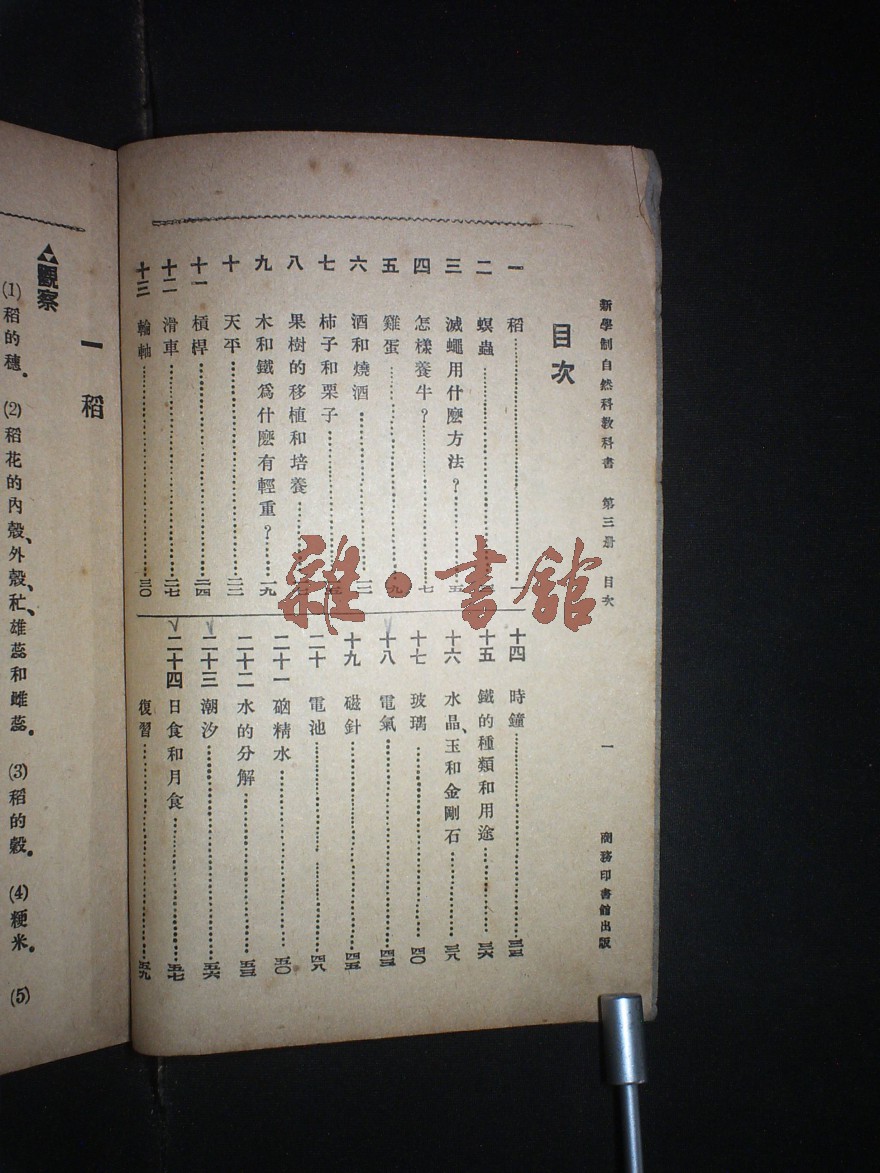 新學制自然科教科書 第三册 目次 一 商務印書館出版
目次
一 稻………一
二 螟蟲………
三 滅蠅用什麽方法？………五
四 怎樣養牛？………七
五 雞蛋………九
六 酒和燒酒………一二
七 柿子和栗子………
八 果樹的移植和培養………
九 木和鐵爲什麽有輕重？………一九
十 天平………二二
十一 槓桿………二四
十二 滑車………二七
十三 輪軸………三〇
十四 時鐘………三三
十五 鐵的種類和用途………三六
十六 水晶、玉和金剛石………三八
十七 玻璃………四〇
十八 電氣………四三
十九 磁針………四五
二十 電池………四八
二十一 硇精水………五〇
二十二 水的分解………五三
二十三 潮汐………五六
二十四 日食和月食………五七
復習………五九
一 稻
觀察
(1)稻的穗。 (2)稻花的內殼、外殼、芒、雄蕊和雌蕊。 (3)稻的穀。 (4)粳米。 (5)
雜·書館